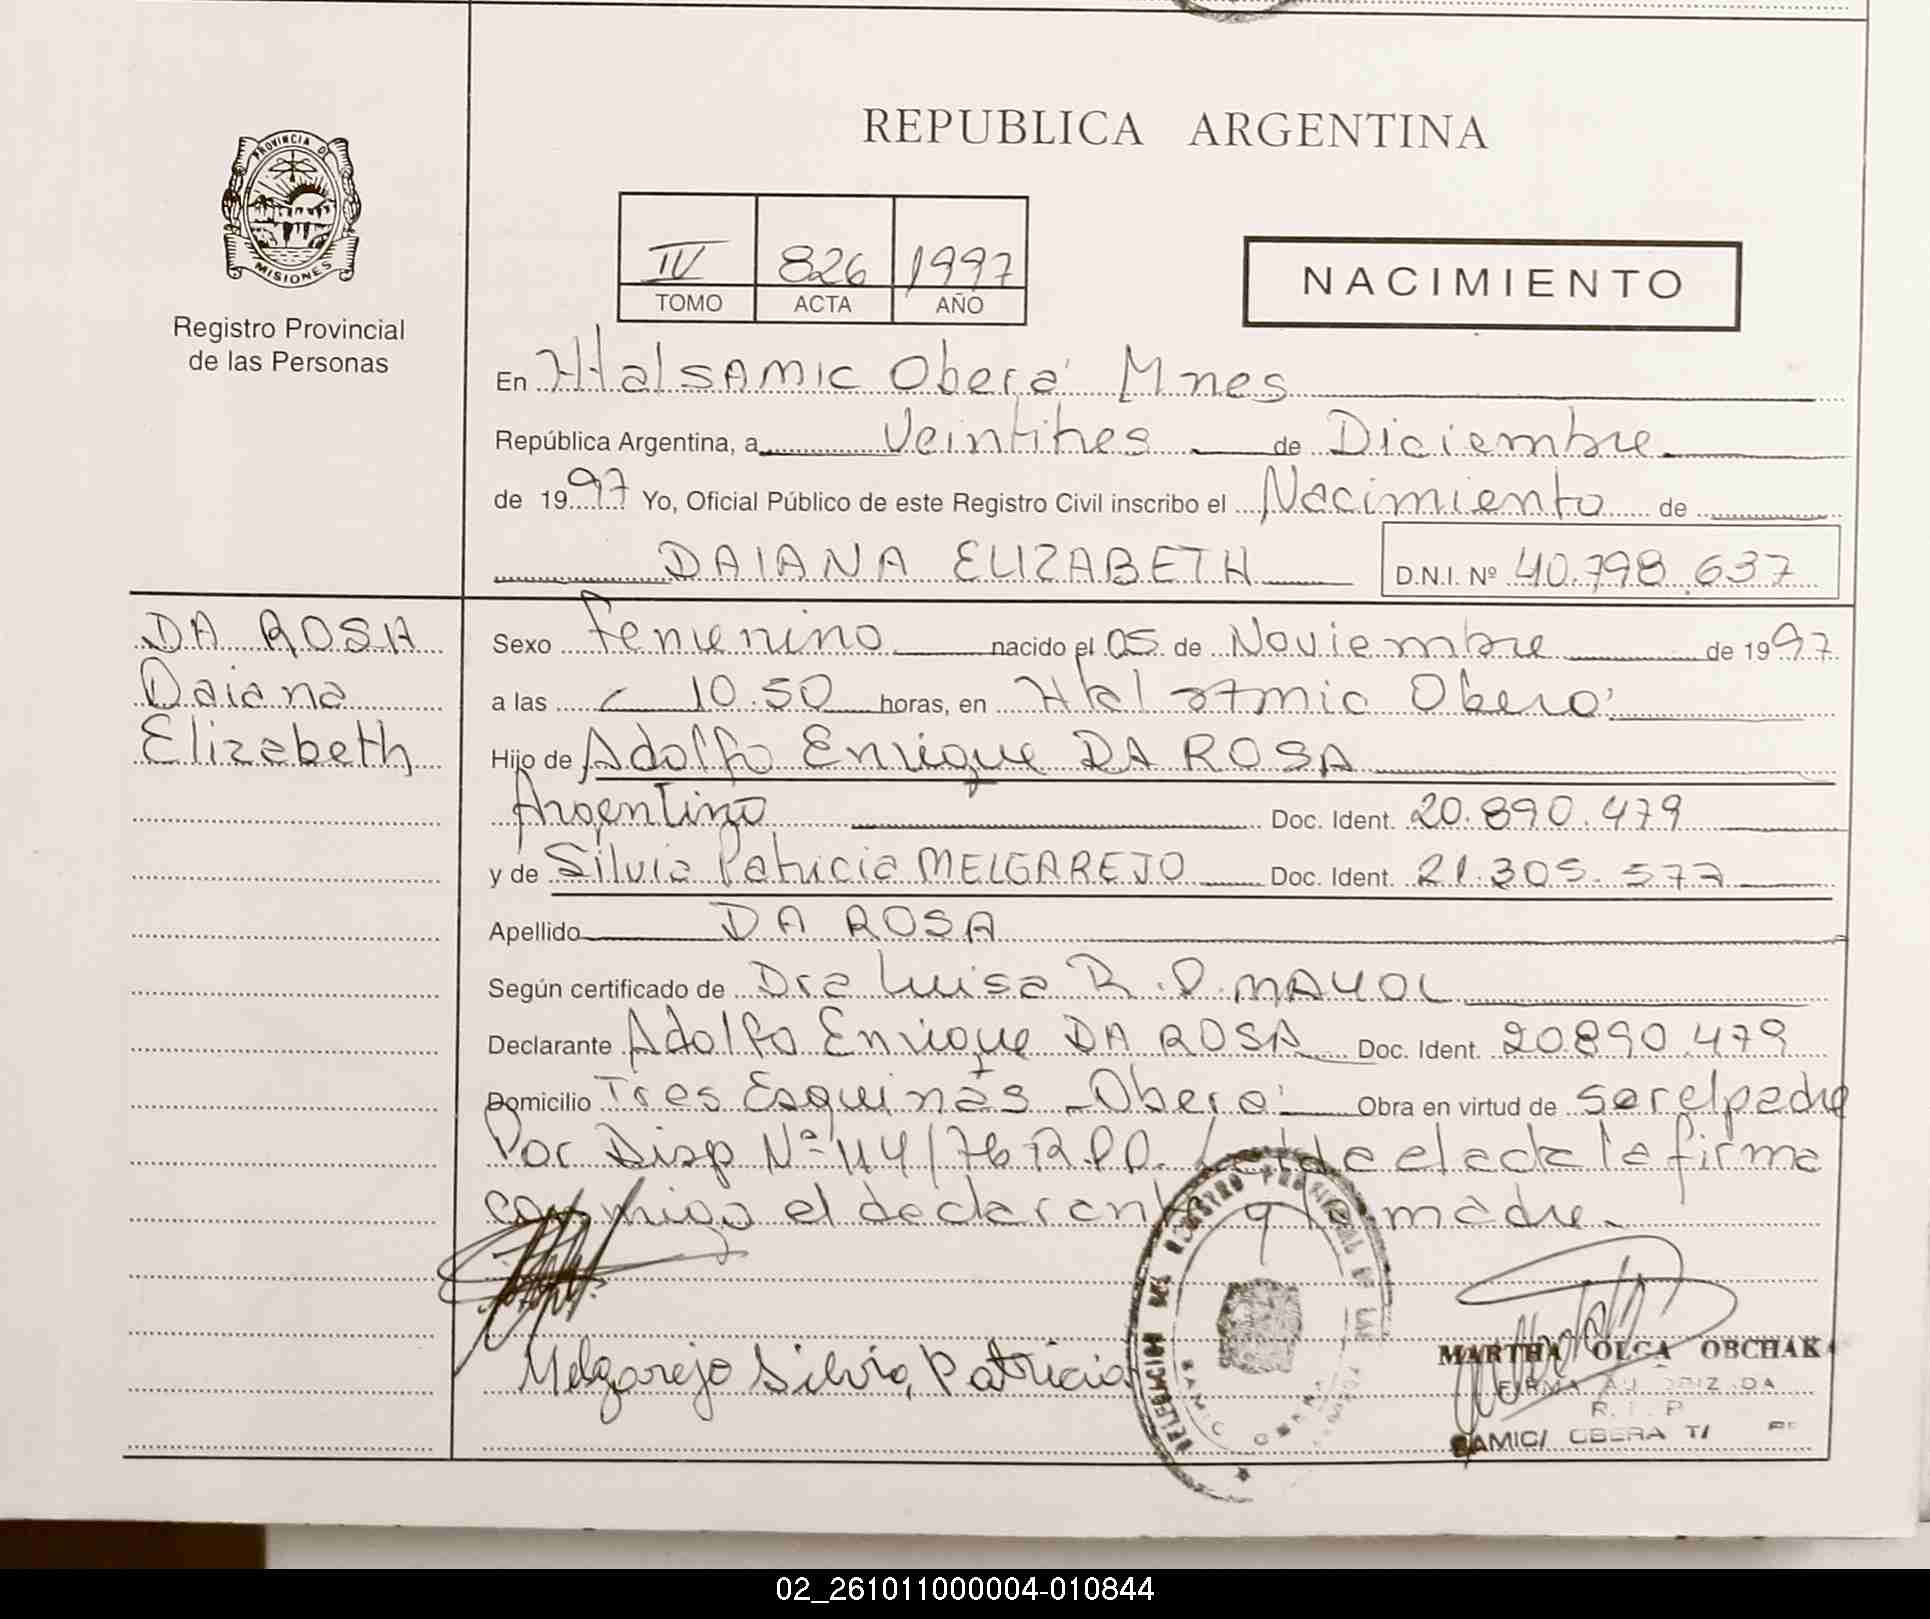 REPUBLICA ARGENTINA
PROVINCIA DE
MISIONES
Registro Provincial
de las Personas
IV 826 1997
TOMO ACTA AÑO
NACIMIENTO
En Htal SAMIC Oberá Mnes
República Argentina, a Veintitres de Diciembre
de 1997 Yo, Oficial Público de este Registro Civil inscribo el Nacimiento de
DAIANA ELIZABETH D.N.I. Nº 40.798.637
DA ROSA
Daiana
Elizabeth
Sexo Femenino nacido el 05 de Noviembre de 1997
a las 10.50 horas, en Htal Oberá
Hijo de Adolfo Enrique DA ROSA
Argentino Doc. Ident. 20.890.479
y de Silvia Patricia MELGAREJO Doc. Ident. 21.305.577
Apellido DA ROSA
Según certificado de Dra Luisa R.D. MAYOL
Declarante Adolfo Enrique DA ROSA Doc. Ident. 20.890.479
Domicilio Tres Esquinas - Oberá Obra en virtud de ser el padre
Por Disp Nº 114/76 R.P.P. Leída el acta la firma
conmigo el declarante y la madre.
Melgarejo Silvia, Patricia
DELEGACION DEL REGISTRO PROVINCIAL DE LAS
SAMIC OBERA
MARTHA OLGA OBCHAK
FIRMA AUTORIZADA
SAMIC/ OBERA
02_261011000004-010844